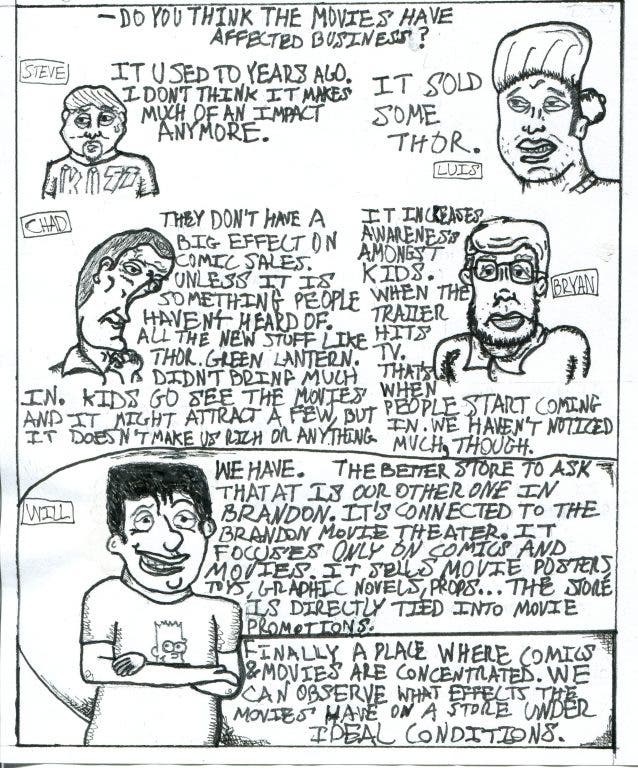 —DO YOU THINK THE MOVIES HAVE
AFFECTED BUSINESS?
STEVE
IT USED TO YEARS AGO.
I DON'T THINK IT MAKES
MUCH OF AN IMPACT
ANYMORE.
KISS
IT SOLD
SOME
THOR.
LUIS
CHAD
THEY DON'T HAVE A
BIG EFFECT ON
COMIC SALES.
UNLESS IT IS
SOMETHING PEOPLE
HAVEN'T HEARD OF.
ALL THE NEW STUFF LIKE
THOR. GREEN LANTERN.
DIDN'T BRING MUCH
IN. KIDS GO SEE THE MOVIES
AND IT MIGHT ATTRACT A FEW, BUT
IT DOESN'T MAKE US RICH OR ANYTHING
IT INCREASES
AWARENESS
AMONGST
KIDS.
WHEN THE
TRAILER
HITS
TV.
THAT'S
WHEN
PEOPLE START COMING
IN. WE HAVEN'T NOTICED
MUCH, THOUGH.
BRYAN
WILL
WE HAVE. THE BETTER STORE TO ASK
THAT AT IS OUR OTHER ONE IN
BRANDON. IT'S CONNECTED TO THE
BRANDON MOVIE THEATER. IT
FOCUSES ONLY ON COMICS AND
MOVIES. IT SELLS MOVIE POSTERS
TOYS, GRAPHIC NOVELS, PROPS... THE STORE
IS DIRECTLY TIED INTO MOVIE
PROMOTIONS.
FINALLY A PLACE WHERE COMICS
& MOVIES ARE CONCENTRATED. WE
CAN OBSERVE WHAT EFFECTS THE
MOVIES HAVE ON A STORE UNDER
IDEAL CONDITIONS.